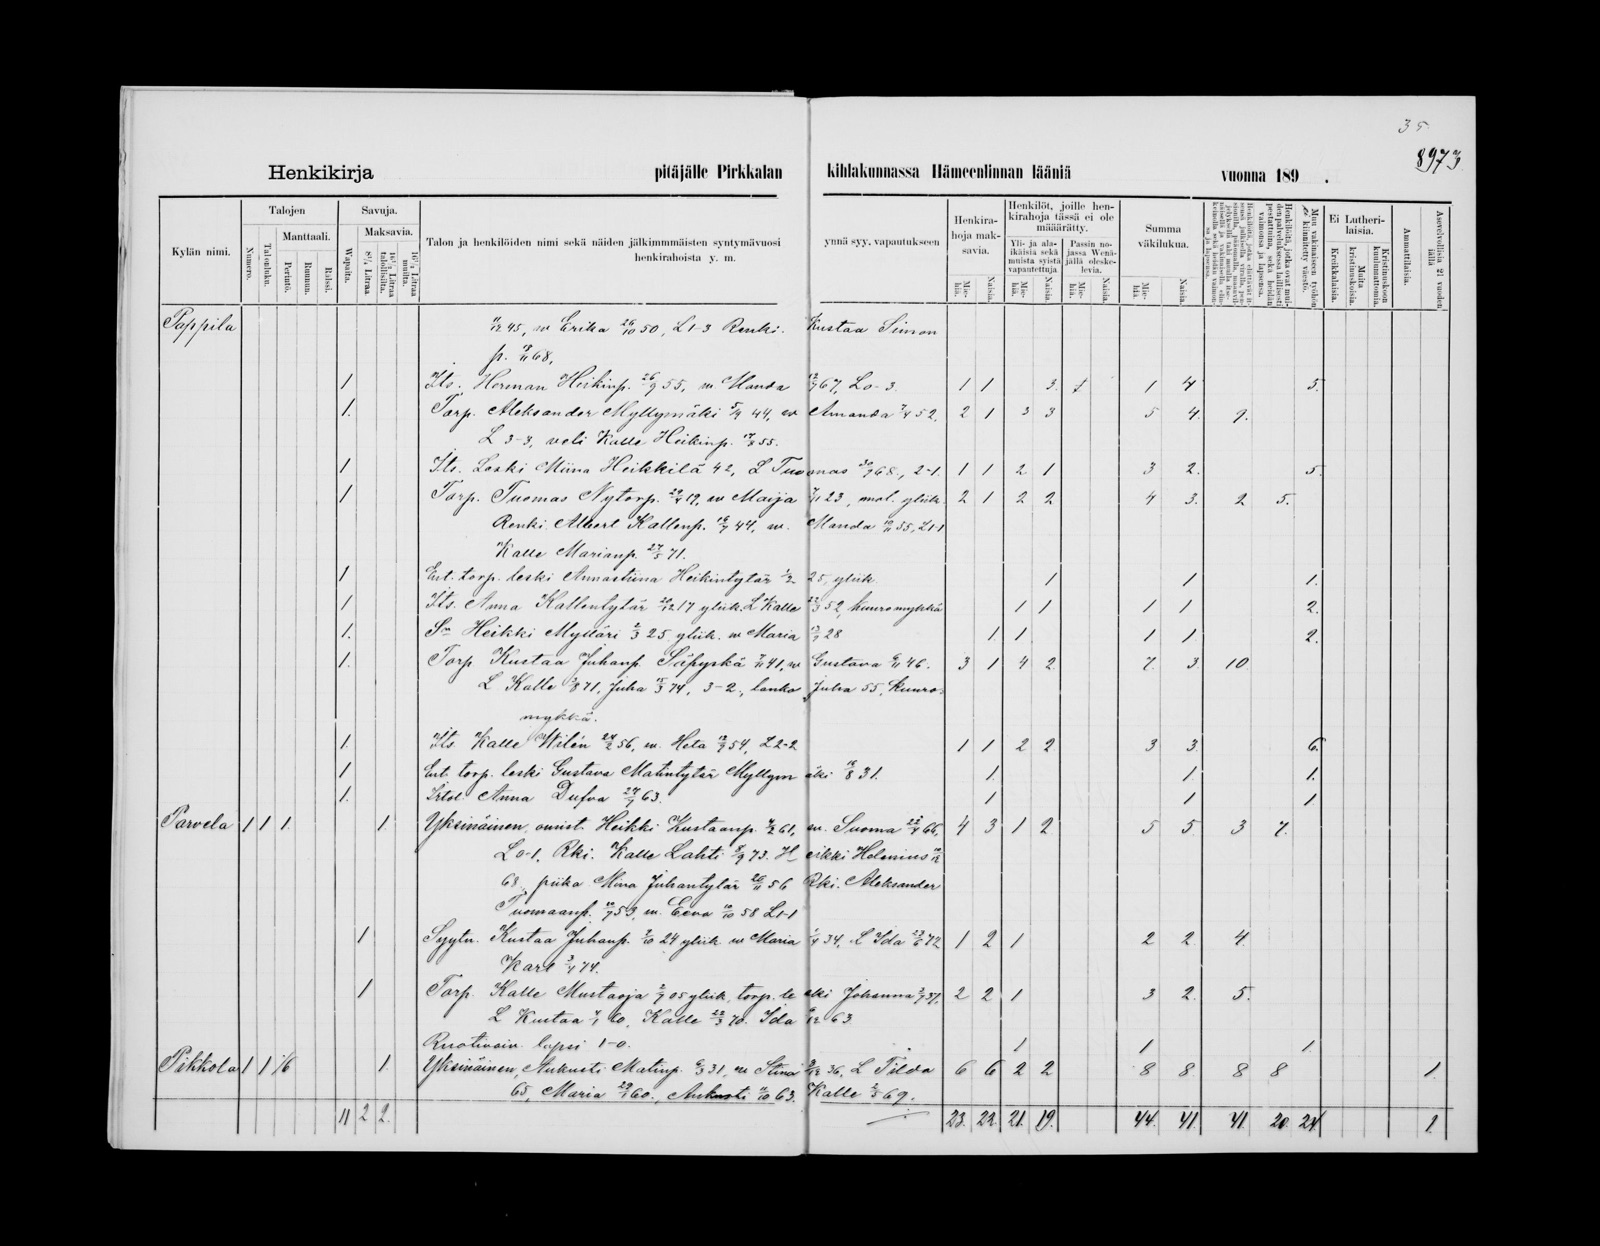 35.
8973
Henkikirja pitäjälle Pirkkalan kihlakunnassa Hämeenlinnan lääniä vuonna 189 .
Kylän nimi.
Talojen
Numero.
Taloluku.
Manttaali.
Perintö.
Ruunun.
Rälssi.
Savuja.
Wapaita.
Maksavia.
8¹/₄ Litraa
16¹/₂ Litraa taloilsilta.
16¹/₂ Litraa muilta.
Talon ja henkilöiden nimi sekä näiden jälkimmmäisten syntymävuosi ynnä syy. vapautukseen
henkirahoista y. m.
Henkirahoja maksavia.
Miehiä.
Naisia.
Henkilöt, joille henkirahoja tässä ei ole määärätty.
Yli- ja alaikäisiä sekä muista syistä vapautettuja
Miehiä.
Naisia.
Passin nojassa Wenäjällä oleskelevia.
Miehiä.
Naisia.
Summa väkilukua.
Miehiä.
Naisia.
Muu vakinaiseen työhön ei kiinnitetty väestö.
Ei Lutherilaisia.
Kreikkalaisia.
Muita kristinuskoisia.
Kristinuskoon kuulumattomia.
Ammattilaisia.
Asevelvollisia 21 vuoden iällä
Pappila 11/12 45, w Erika 26/10 50, L 1-3 Renki. Kustaa Simon
p. 68,
1 Its. Herman Heikinp. 26/9 55, w. Manda 67, L 0-3. 1 1 3. 1 4 5.
1. Torp. Aleksander Myllymäki 44, w Amanda 7/4 52. 2 1 3 3 5 4. 9.
L 3-3, veli Kalle Heikinp. 55.
1 Its. Leski Miina Heikkilä 42, L Tuomas 68., 2-1. 1 1 2 1 3 2. 5.
1 Torp. Tuomas Nytorp. 19, w Maija 23, mol. ylik. 2 1 2 2 4 3. 2 5.
Renki Albert Kallenp. 44, w. Manda 55, L 1-1
Kalle Marianp. 27/5 71.
1 Ent. torp. leski Annastiina Heikintytär 1/2 25, ylik. 1 1 1.
1 Its. Anna Kallentytär 17 ylik. L Kalle 22/3 52, kuuromykkä 1 1 1 1 2.
1. Sn Heikki Mylläri 2/3 25 ylik. w Maria 28 1. 1 1 1 2.
1. Torp Kustaa Juhanp. Säpyskä 41, w Gustava 46. 3 1 4 2. 7. 3 10
L Kalle 71, Juha 74, 3-2., lanko Juha 55, kuuro-
mykkä.
1. Its Kalle Wilén 24/2 56, w. Heta 54, L 2-2 1 1 2 2. 3 3. 6.
1 Ent. torp. leski Gustava Matintytär Myllymäki 31. 1. 1. 1.
1. Irtol. Anna Dufva 63. 1 1 1.
Parvela 1 1 1. 1. Yksinäinen, omist. Heikki Kustaanp. 61, w. Suoma 66, 4 3 1 2 5 5. 3 7.
L 0-1, Rki. Kalle Lahti 8/9 73. Heikki Helenius
68, piika Mina Juhantytär 26/11 56 Rki. Aleksander
Tuomaanp. 53, w. Eeva 58 L 1-1
1 Syytn. Kustaa Juhanp. 24 ylik w Maria 1/4 34, L Ida 72 1 2 1 2 2. 4.
Karl 74.
1 Torp. Kalle Mustaoja 05 ylik, torp. leski Johanna 37, 2 2 1 3 2. 5.
L Kustaa 60, Kalle 22/3 70. Ida 63.
Ruotivaiv. lapsi 1-0. 1 1 1.
Pikkola 1 1 1/6 1. Yksinäinen, Aukusti Matinp. 31, w Stina 36, L Tilda 6 6 2 2 8 8. 8 8 1.
65, Maria 60., Aukusti 63. Kalle 69.
11 2 2. 23. 22. 21. 19. 44. 41. 41. 20. 24. 1.